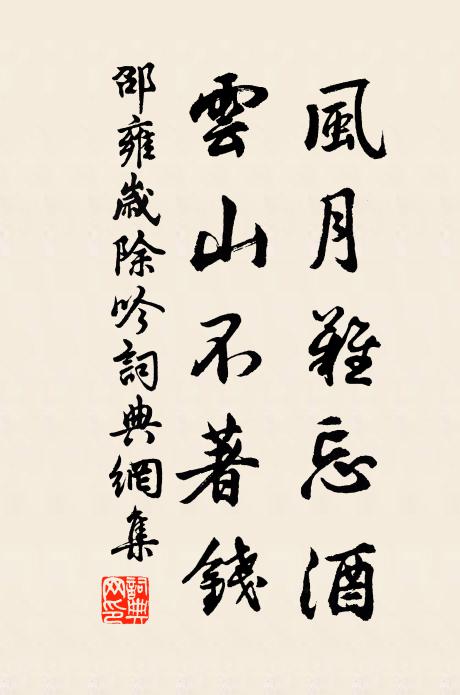 風月難忘酒
雲山不著錢
邵雍歲除吟詞典網集
詞典
网印